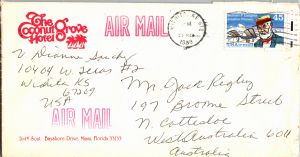 The
Coconut Grove
Hotel
AIR MAIL
45
USAirmail
V Dianne
10404 W Texas #2
Wichita KS
67209
USA
AIR MAIL
Mr. Jack Rigby
197 Broome Street
N. Cottesloe
West Australia 6011
Australia
2649 South Bayshore Drive, Miami, Florida 33133